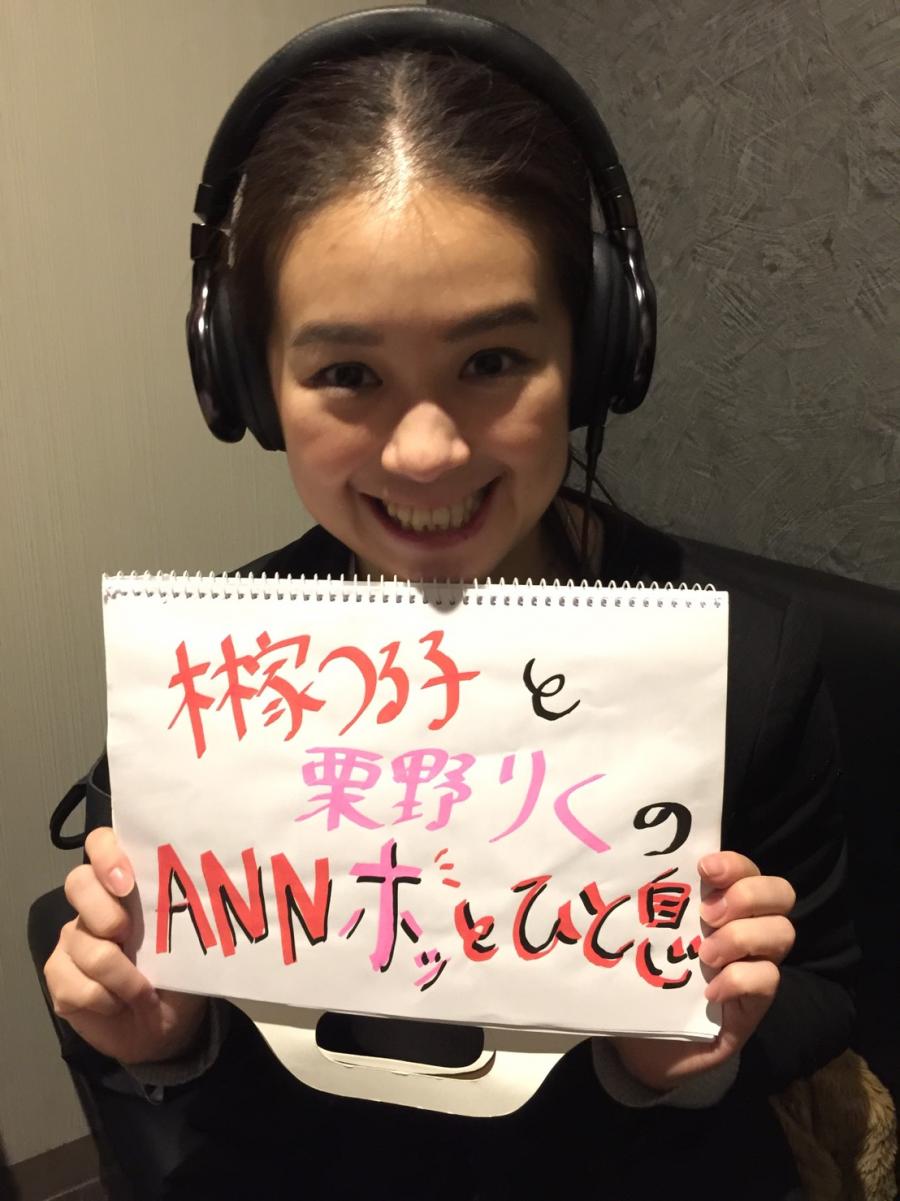 林家つる子と
栗野りくの
ANNホッとひと息